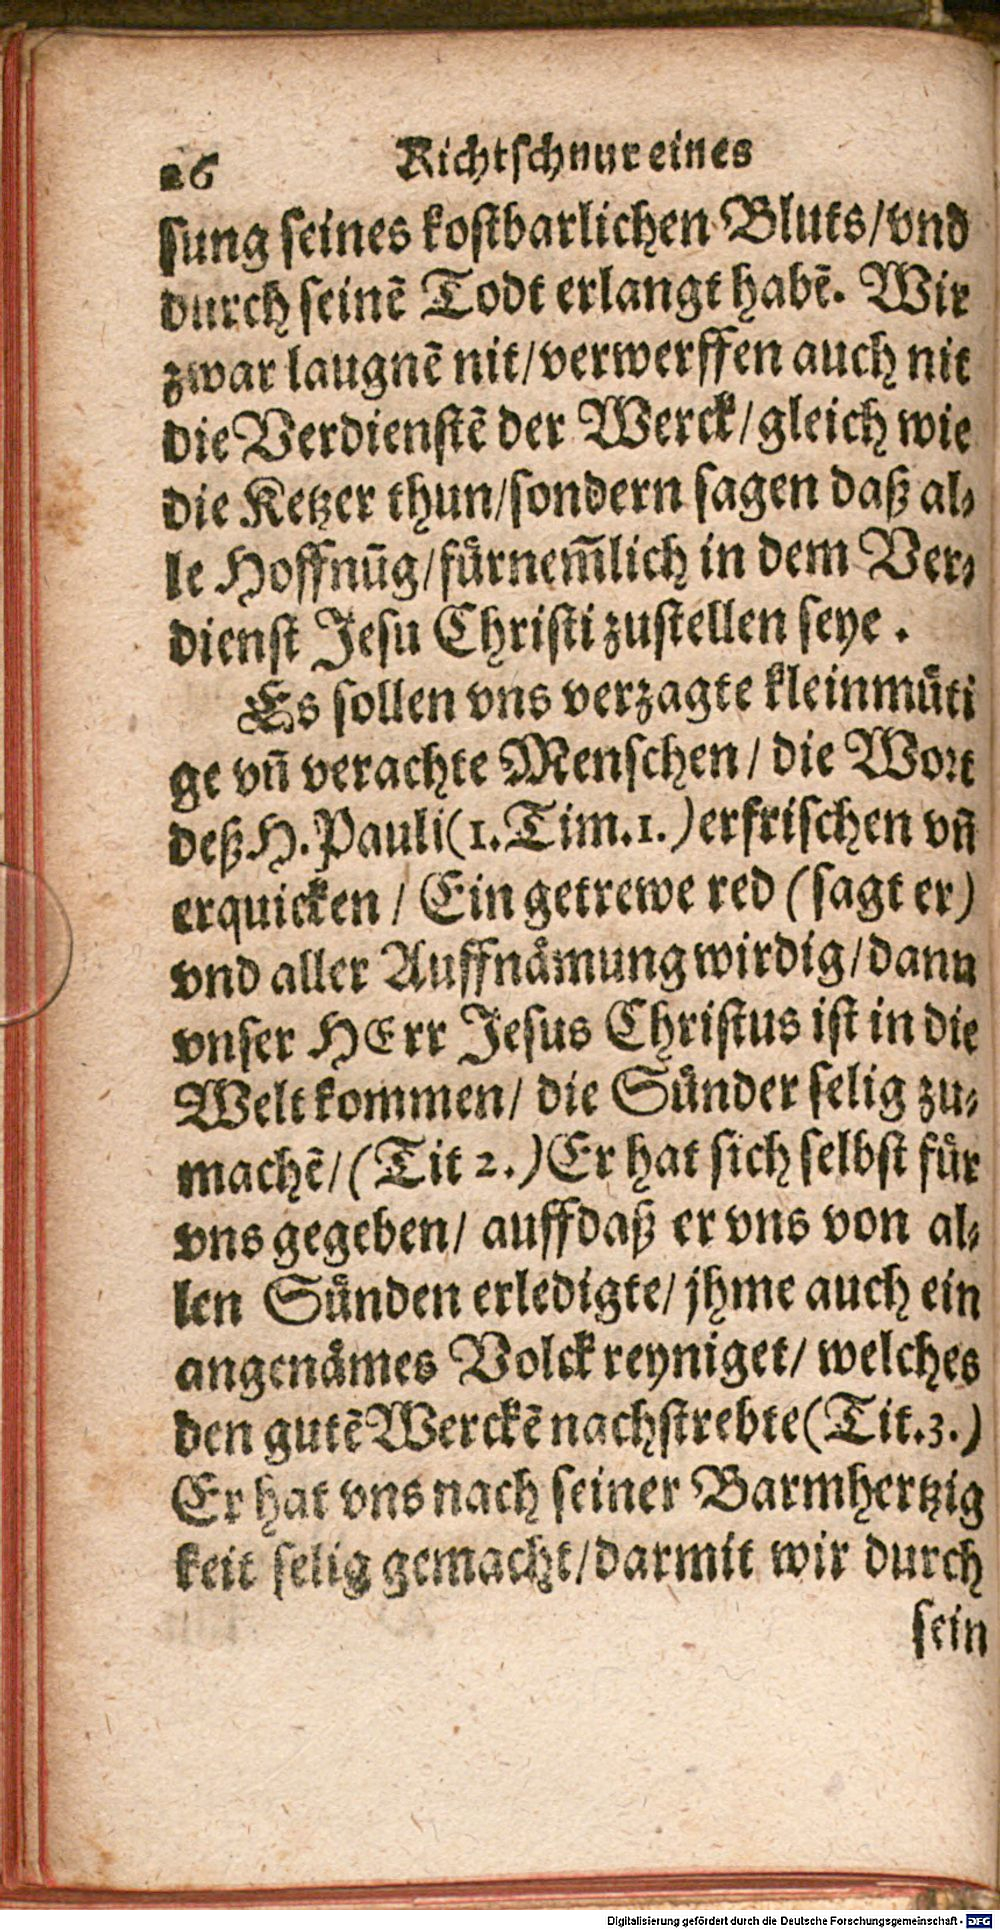 26 Richtschnur eines
sung seines kostbarlichen Bluts/vnd
durch seinē Todt erlangt habē. Wir
zwar laugnē nit/verwerffen auch nit
die Verdienstē der Werck/gleich wie
die Ketzer thun/sondern sagen daß al⸗
le Hoffnūg/fürnem̄lich in dem Ver⸗
dienst Jesu Christi zustellen seye.
Es sollen vns verzagte kleinmüti
ge vn̄ verachte Menschen/ die Wort
deß H. Pauli(1.Tim.1.)erfrischen vn̄
erquicken / Ein getrewe red (sagt er)
vnd aller Auffnämung wirdig/dann
vnser HErr Jesus Christus ist in die
Welt kommen/ die Sünder selig zu⸗
machē/(Tit 2.)Er hat sich selbst für
vns gegeben/ auffdaß er vns von al⸗
len Sünden erledigte/ jhme auch ein
angenämes Volck reyniget/ welches
den gutē Werckē nachstrebte(Tit.3.)
Er hat vns nach seiner Barmhertzig
keit selig gemacht/darmit wir durch
sein
Digitalisierung gefördert durch die Deutsche Forschungsgemeinschaft - DFG